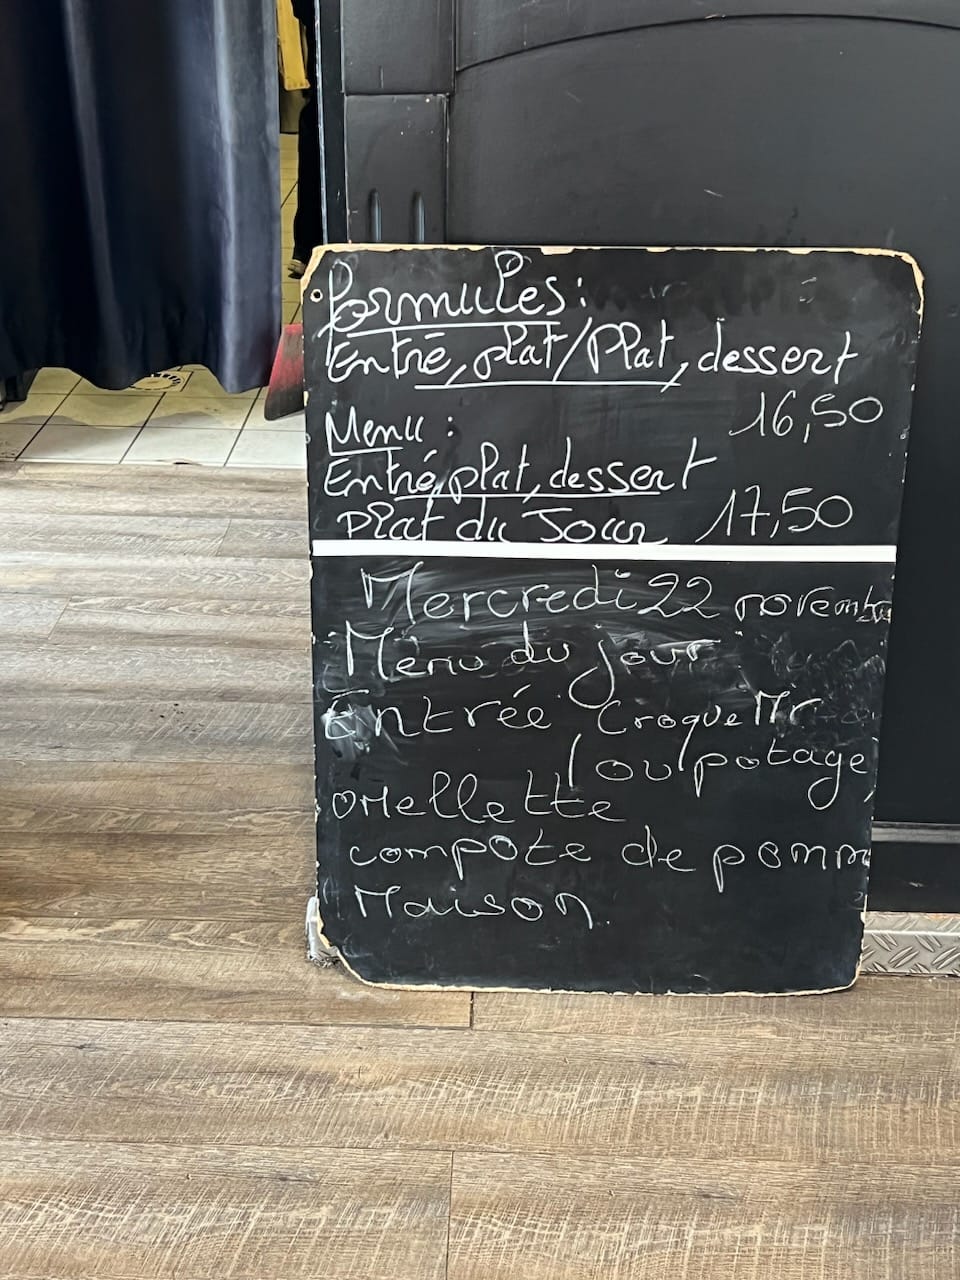 Formules:
Entré, plat/Plat, dessert
16,50
Menu :
Entré, plat, dessert
Plat du Jour 17,50
Mercredi 22 novembre
Menu du jour
Entrée croque Mr
/ou/potage
oMellette
compote de pomm
Maison.